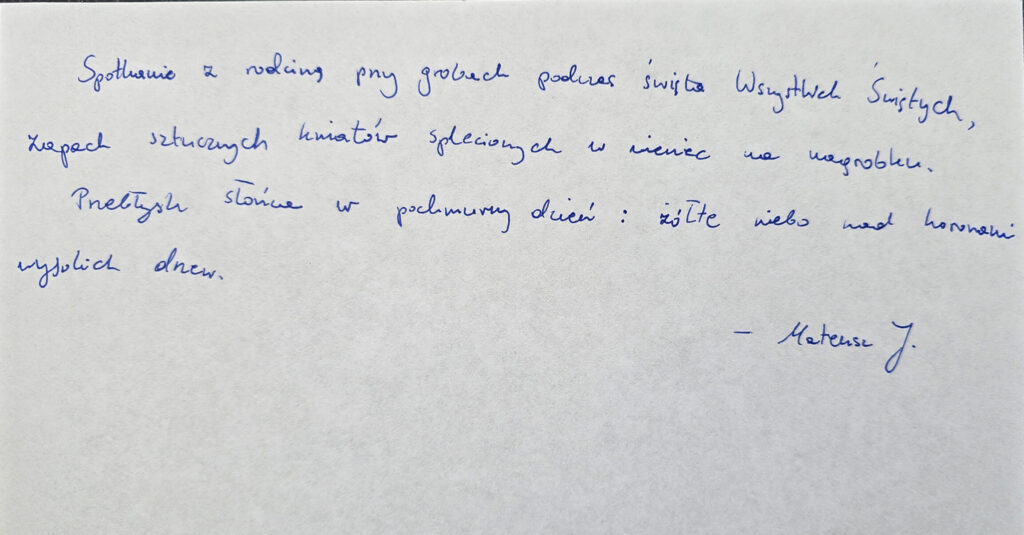 Spotkanie z rodziną przy grobach podczas święta Wszystkich Świętych,
zapach sztucznych kwiatów splecionych w wieniec na nagrobku.
Przebłysk słońca w pochmurny dzień : żółte niebo nad koronami
wysokich drzew.
— Mateusz J.